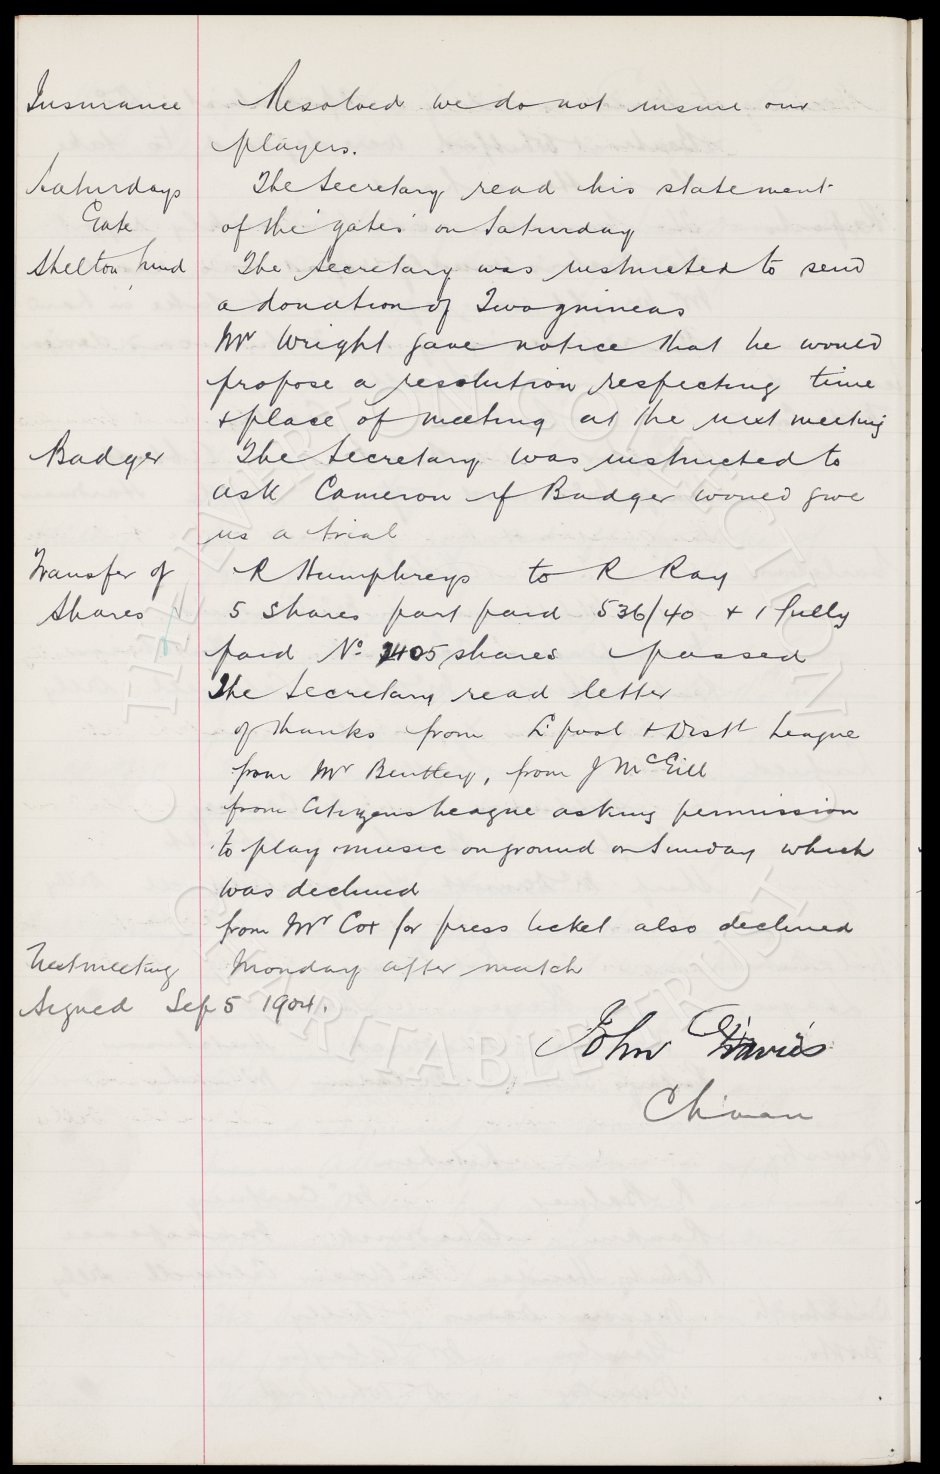 Insurance Resolved we do not insure our
players.
Saturdays The Secretary read his statement
Gate of the 'gates' on Saturday
Shelton Fund The Secretary was instructed to send
a donation of Two guineas
Mr Wright gave notice that he would
propose a resolution respecting time
& place of meeting at the next meeting
Badger The Secretary was instructed to
ask Cameron if Badger would give
us a trial
Transfer of R Humphreys to R Ray
Shares 5 Shares part paid 536/40 & 1 fully
paid No 2405 shares passed
The Secretary read letter
of thanks from L'pool & Distt League
from Mr Bentley, from J McGill
from Citizens League asking permission
to play music on ground on Sunday which
was declined
from Mr Cox for press ticket also declined
Next meeting Monday after match
Signed Sep 5 1904.
John Davies
Ch'man
© THE EVERTON COLLECTION
CHARITABLE TRUST